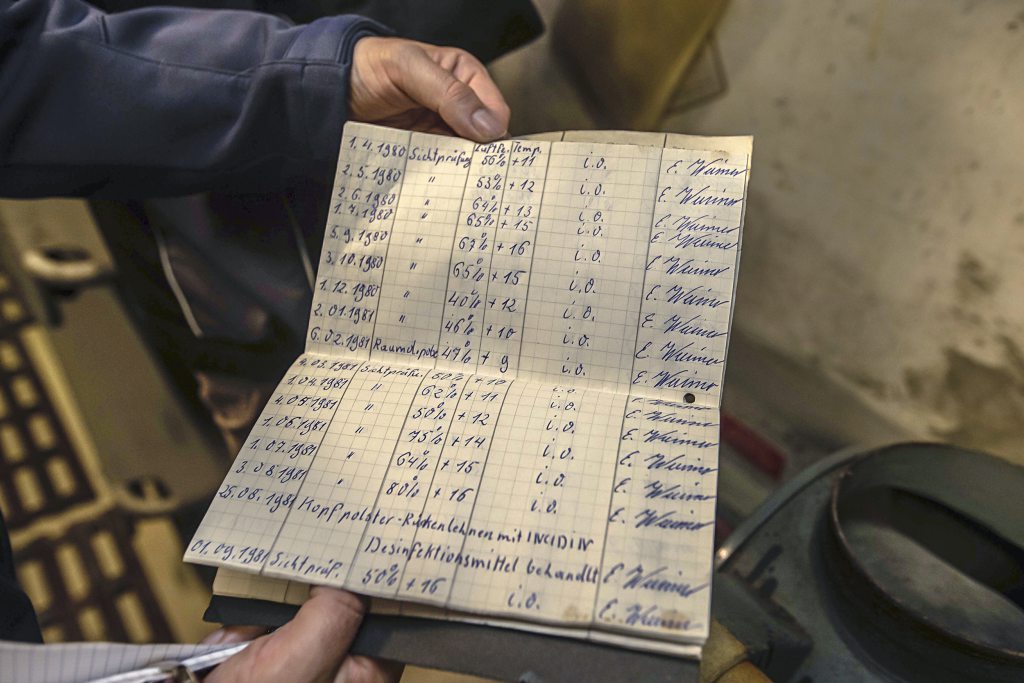 Luftfe. Temp.
1. 4. 1980 Sichtprüfung 50% +11 i.O. E. Weimer
2. 5. 1980 " 53% +12 i.O. E. Weimer
2. 6. 1980 " 64% +13 i.O. E. Weimer
1. 7. 1980 " 65% +15 E. Weimer
5. 9. 1980 " 67% +16 i.O. E. Weimer
3. 10. 1980 " 65% +15 i.O. E. Weimer
1. 12. 1980 " 40% +12 i.O. E. Weimer
2. 01. 1981 " 46% +10 i.O. E. Weimer
6. 02. 1981 47% + 9 i.O. E. Weimer
4. 03. 1981 Sichtprüf. 50% +10 i.O.
1. 04. 1981 " 62% +11 i.O. E. Weimer
4. 05. 1981 " 50% +12 i.O. E. Weimer
1. 06. 1981 " 75% +14 i.O. E. Weimer
1. 07. 1981 " 64% +15 i.O. E. Weimer
3. 08. 1981 " 80% +16 i.O. E. Weimer
25. 08. 1981 Kopfpolster-Rückenlehnen mit INCIDIN
Desinfektionsmittel behandlt E. Weimer
01. 09. 1981 Sichtprüf. 50% +16 i.O. E. Weimer